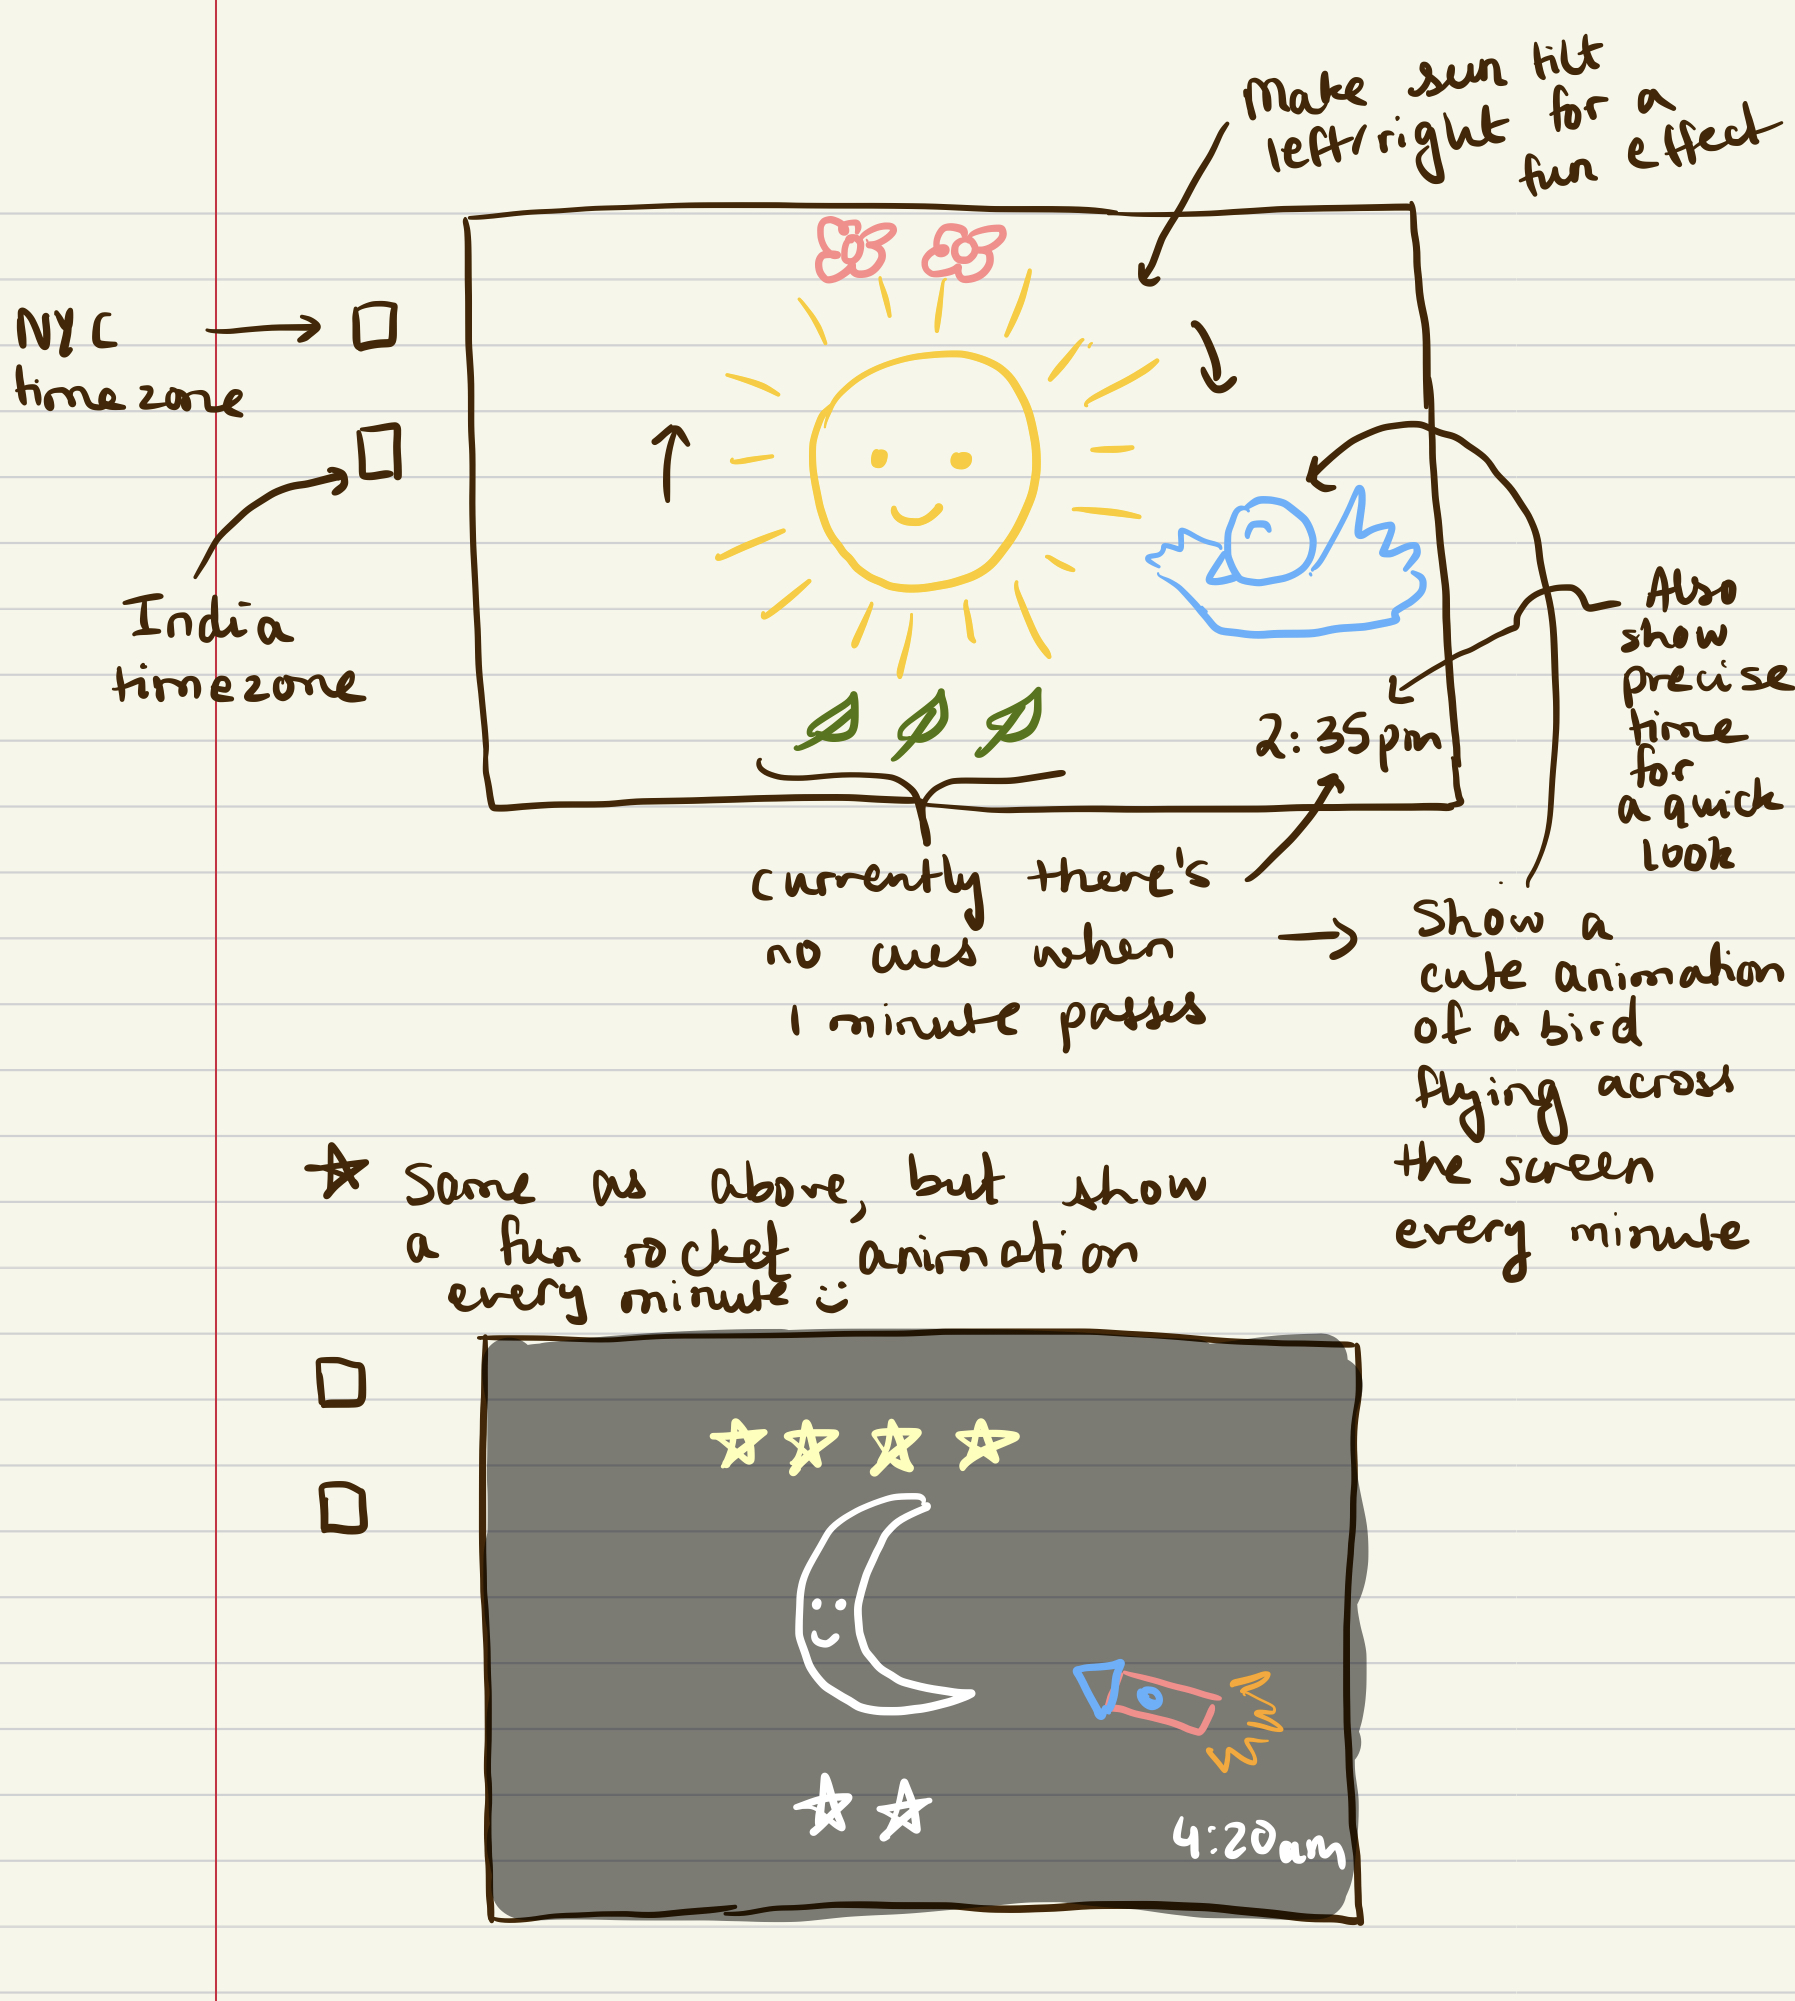 Make sun tilt
left/right for a
fun effect
NYC
timezone
India
timezone
2:35pm
Also
show
precise
time
for
a quick
look
currently there's
no cues when
1 minute passes
Show a
cute animation
of a bird
flying across
the screen
every minute
Same as above, but show
a fun rocket animation
every minute :)
4:20am